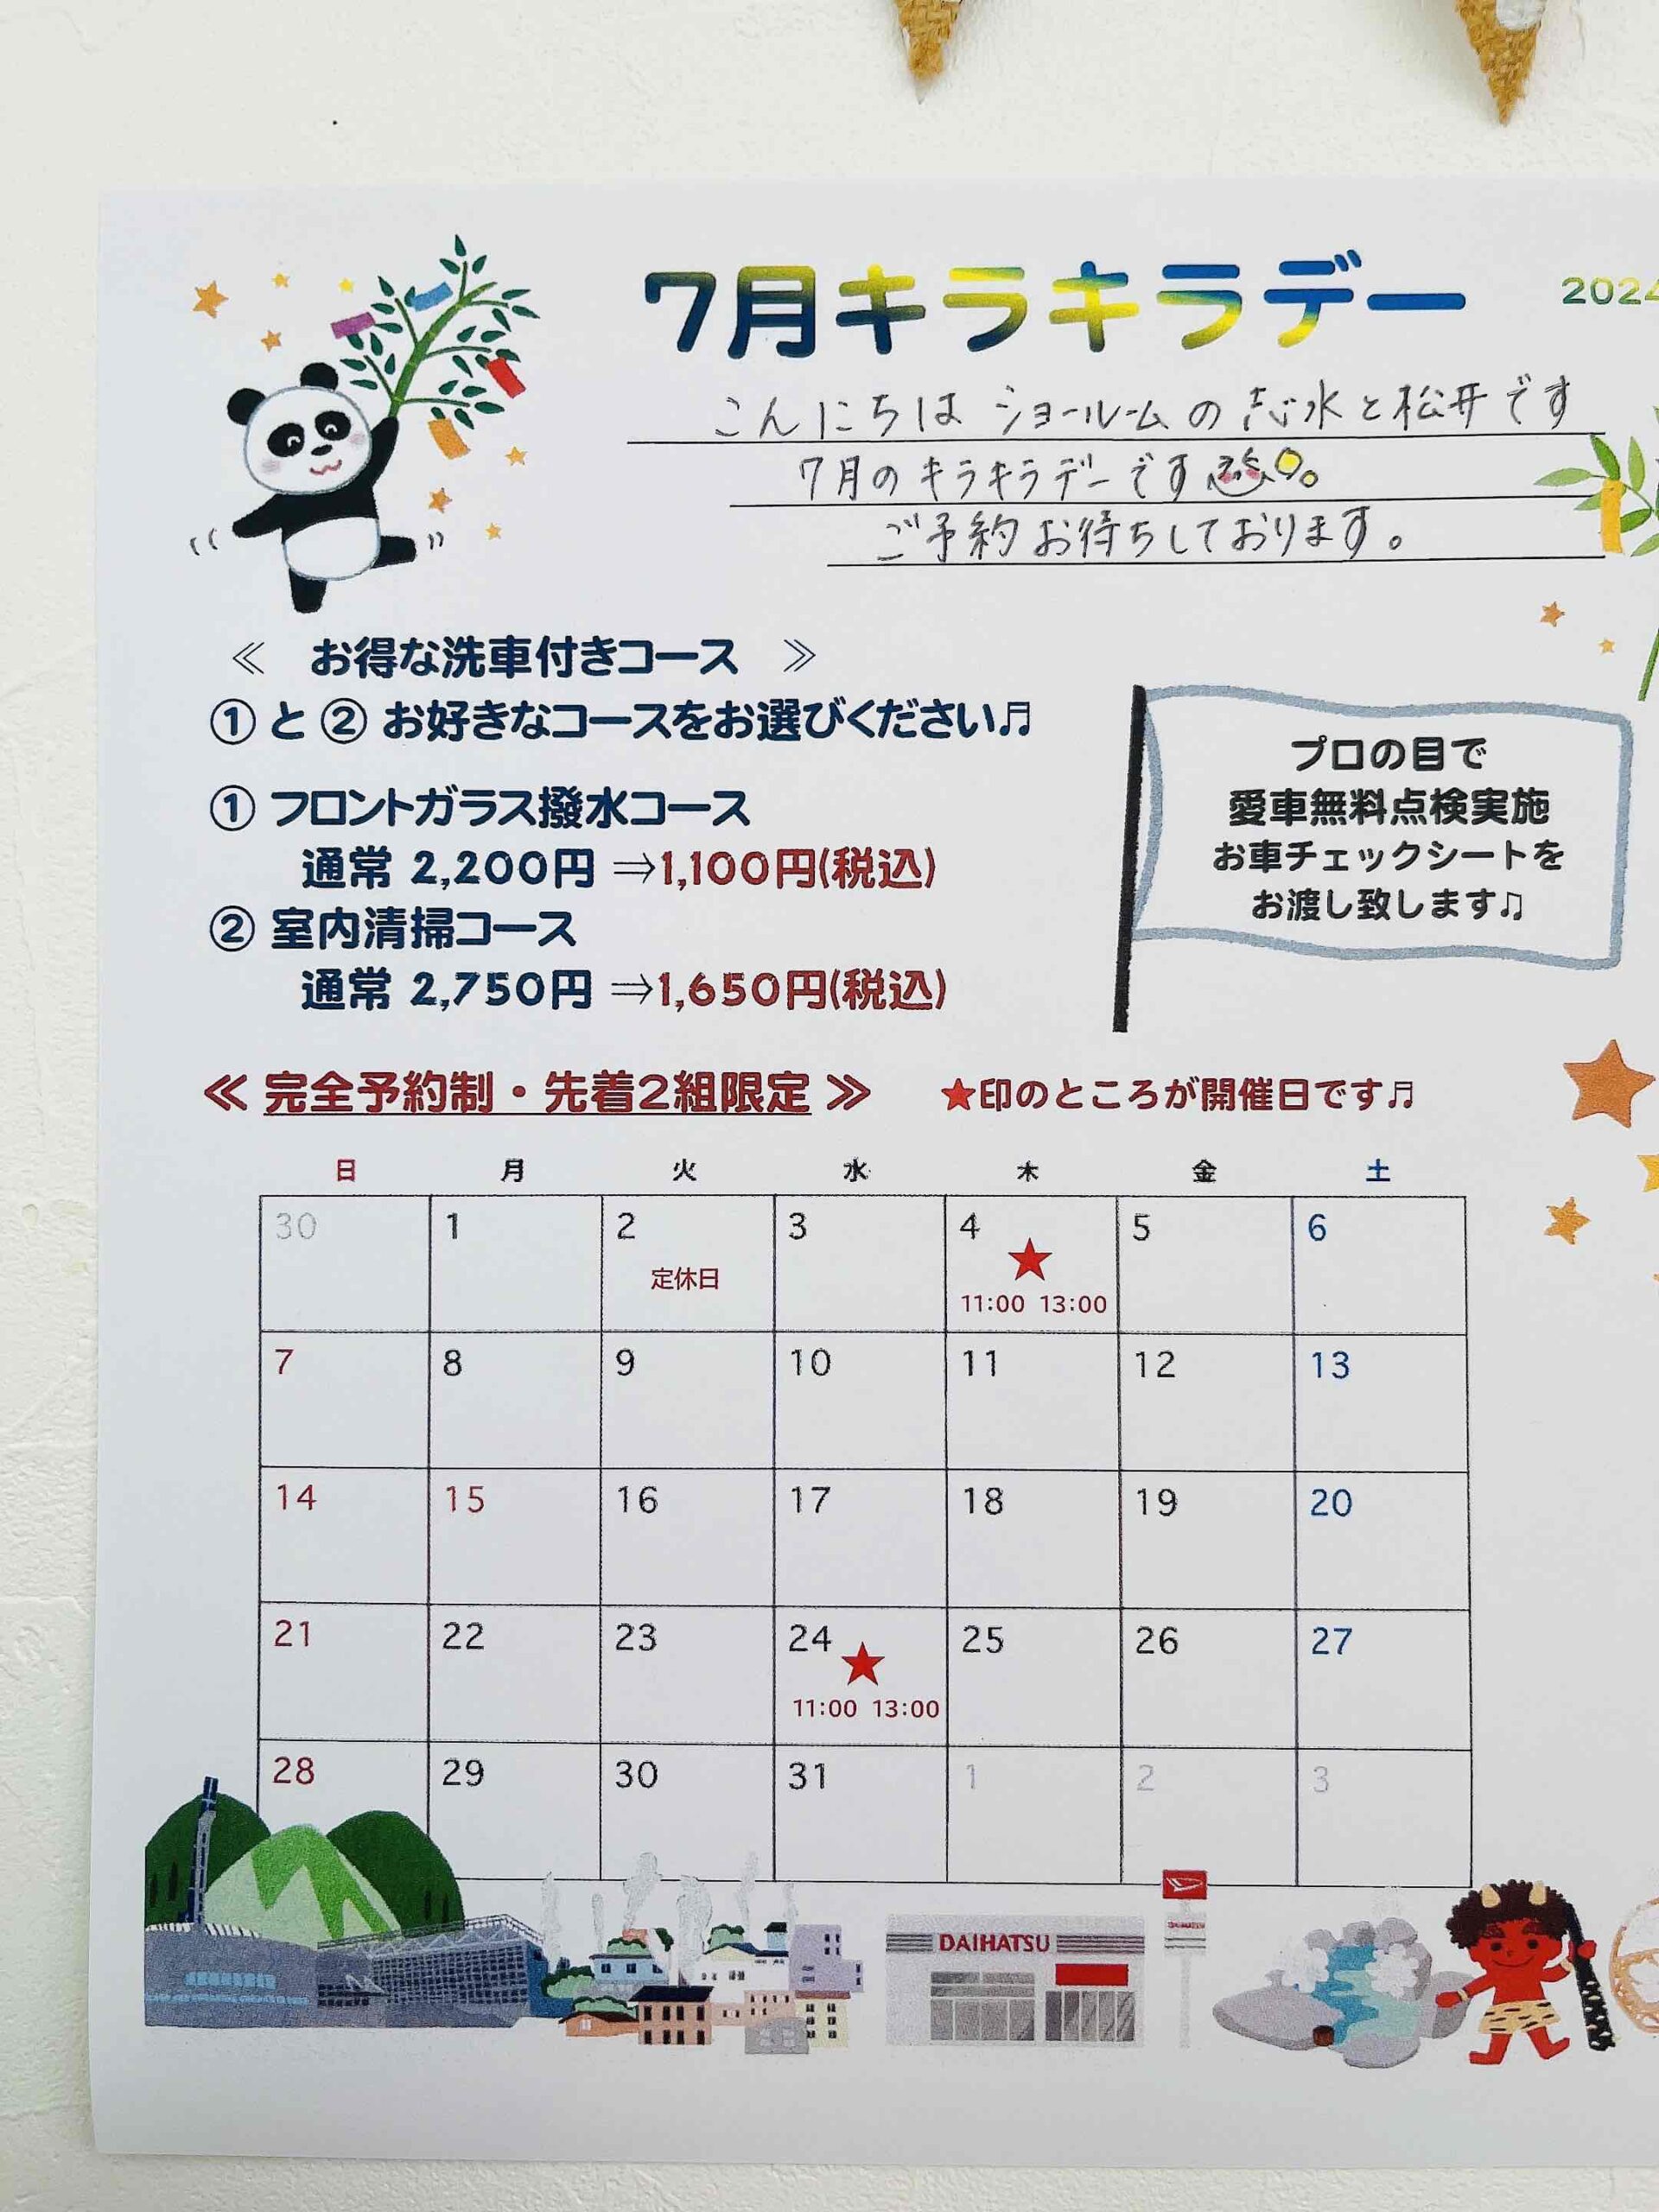 7月キラキラデー
2024
こんにちは ショールームの志水と松井です
7月のキラキラデーです
ご予約お待ちしております。
≪ お得な洗車付きコース ≫
①と② お好きなコースをお選びください♬
① フロントガラス撥水コース
通常 2,200円 ⇒1,100円(税込)
② 室内清掃コース
通常 2,750円 ⇒1,650円(税込)
プロの目で
愛車無料点検実施
お車チェックシートを
お渡し致します♫
≪ 完全予約制・先着2組限定 ≫ ★印のところが開催日です♬
日 月 火 水 木 金 土
30 1 2 3 4 ★ 5 6
定休日 11:00 13:00
7 8 9 10 11 12 13
14 15 16 17 18 19 20
21 22 23 24 ★ 25 26 27
11:00 13:00
28 29 30 31 1 2 3
DAIHATSU